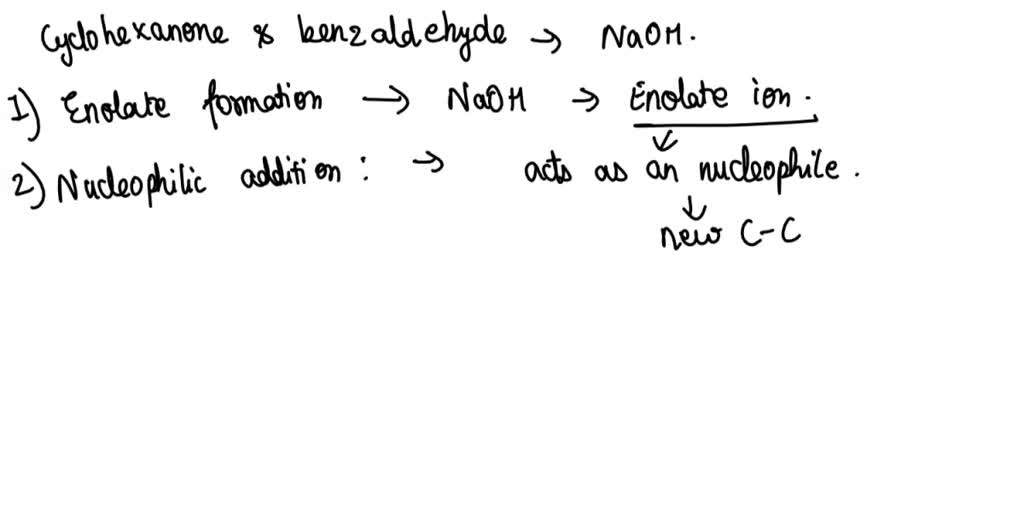 Cyclohexanone & benzaldehyde → NaOH.
1) Enolate formation → NaOH → Enolate ion.
↓
2) Nucleophilic addition : → acts as an nucleophile.
↓
new C-C